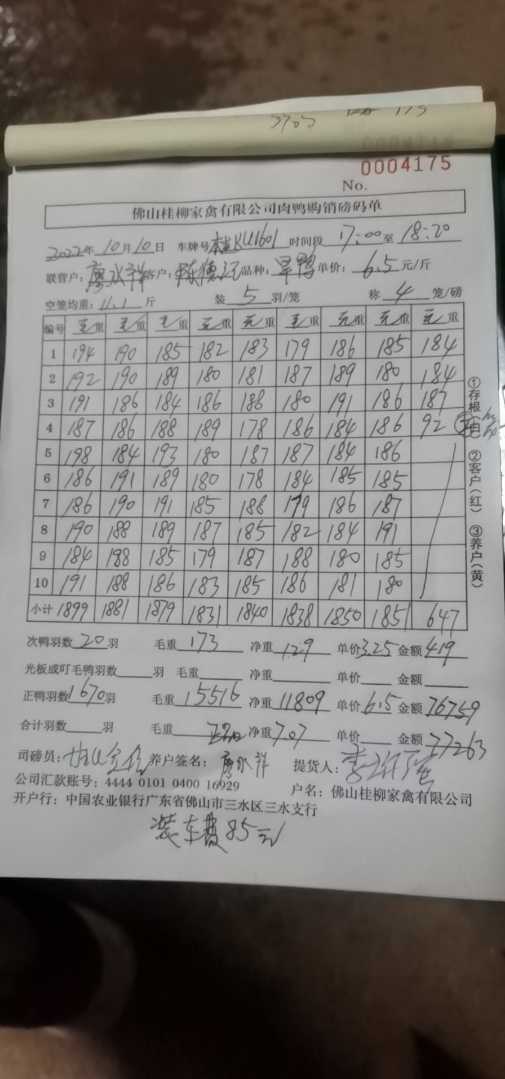 0004175
No.
佛山桂柳家禽有限公司肉鸭购销磅码单
2022年10月10日 车牌号 KU1601 时间段 17:00至18:20
联营户: 廖水祥 客户: 品种: 旱鸭 单价: 6.5元/斤
空笼均重: 11.1斤 装5羽/笼 称4笼/磅
编号 毛重 毛重 毛重 毛重 毛重 毛重 毛重 毛重 毛重
1 194 190 185 182 183 179 186 185 184
2 192 190 189 180 181 187 189 180 184
3 191 186 184 186 188 180 191 186 187
4 187 186 188 189 178 186 184 186 92
5 198 184 193 180 187 187 184 186
6 186 191 189 180 178 184 185 185
7 186 190 191 185 188 179 186 187
8 190 188 189 187 185 182 184 191
9 184 188 185 179 187 188 180 185
10 191 188 186 183 185 186 181 180
小计 1899 1881 1879 1831 1840 1838 1850 1851 647
①存根(白) ②客户(红) ③养户(黄)
次鸭羽数20羽 毛重173 净重129 单价3.25 金额419
光板或叮毛鸭羽数 羽 毛重 净重 单价 金额
正鸭羽数1670羽 毛重15516 净重11809 单价6.5 金额76759
合计羽数 羽 毛重 净重707 单价 金额77263
司磅员: 养户签名: 廖水祥 提货人:
公司汇款账号: 4444 0101 0400 16929 户名: 佛山桂柳家禽有限公司
开户行: 中国农业银行广东省佛山市三水区三水支行
装车费85元